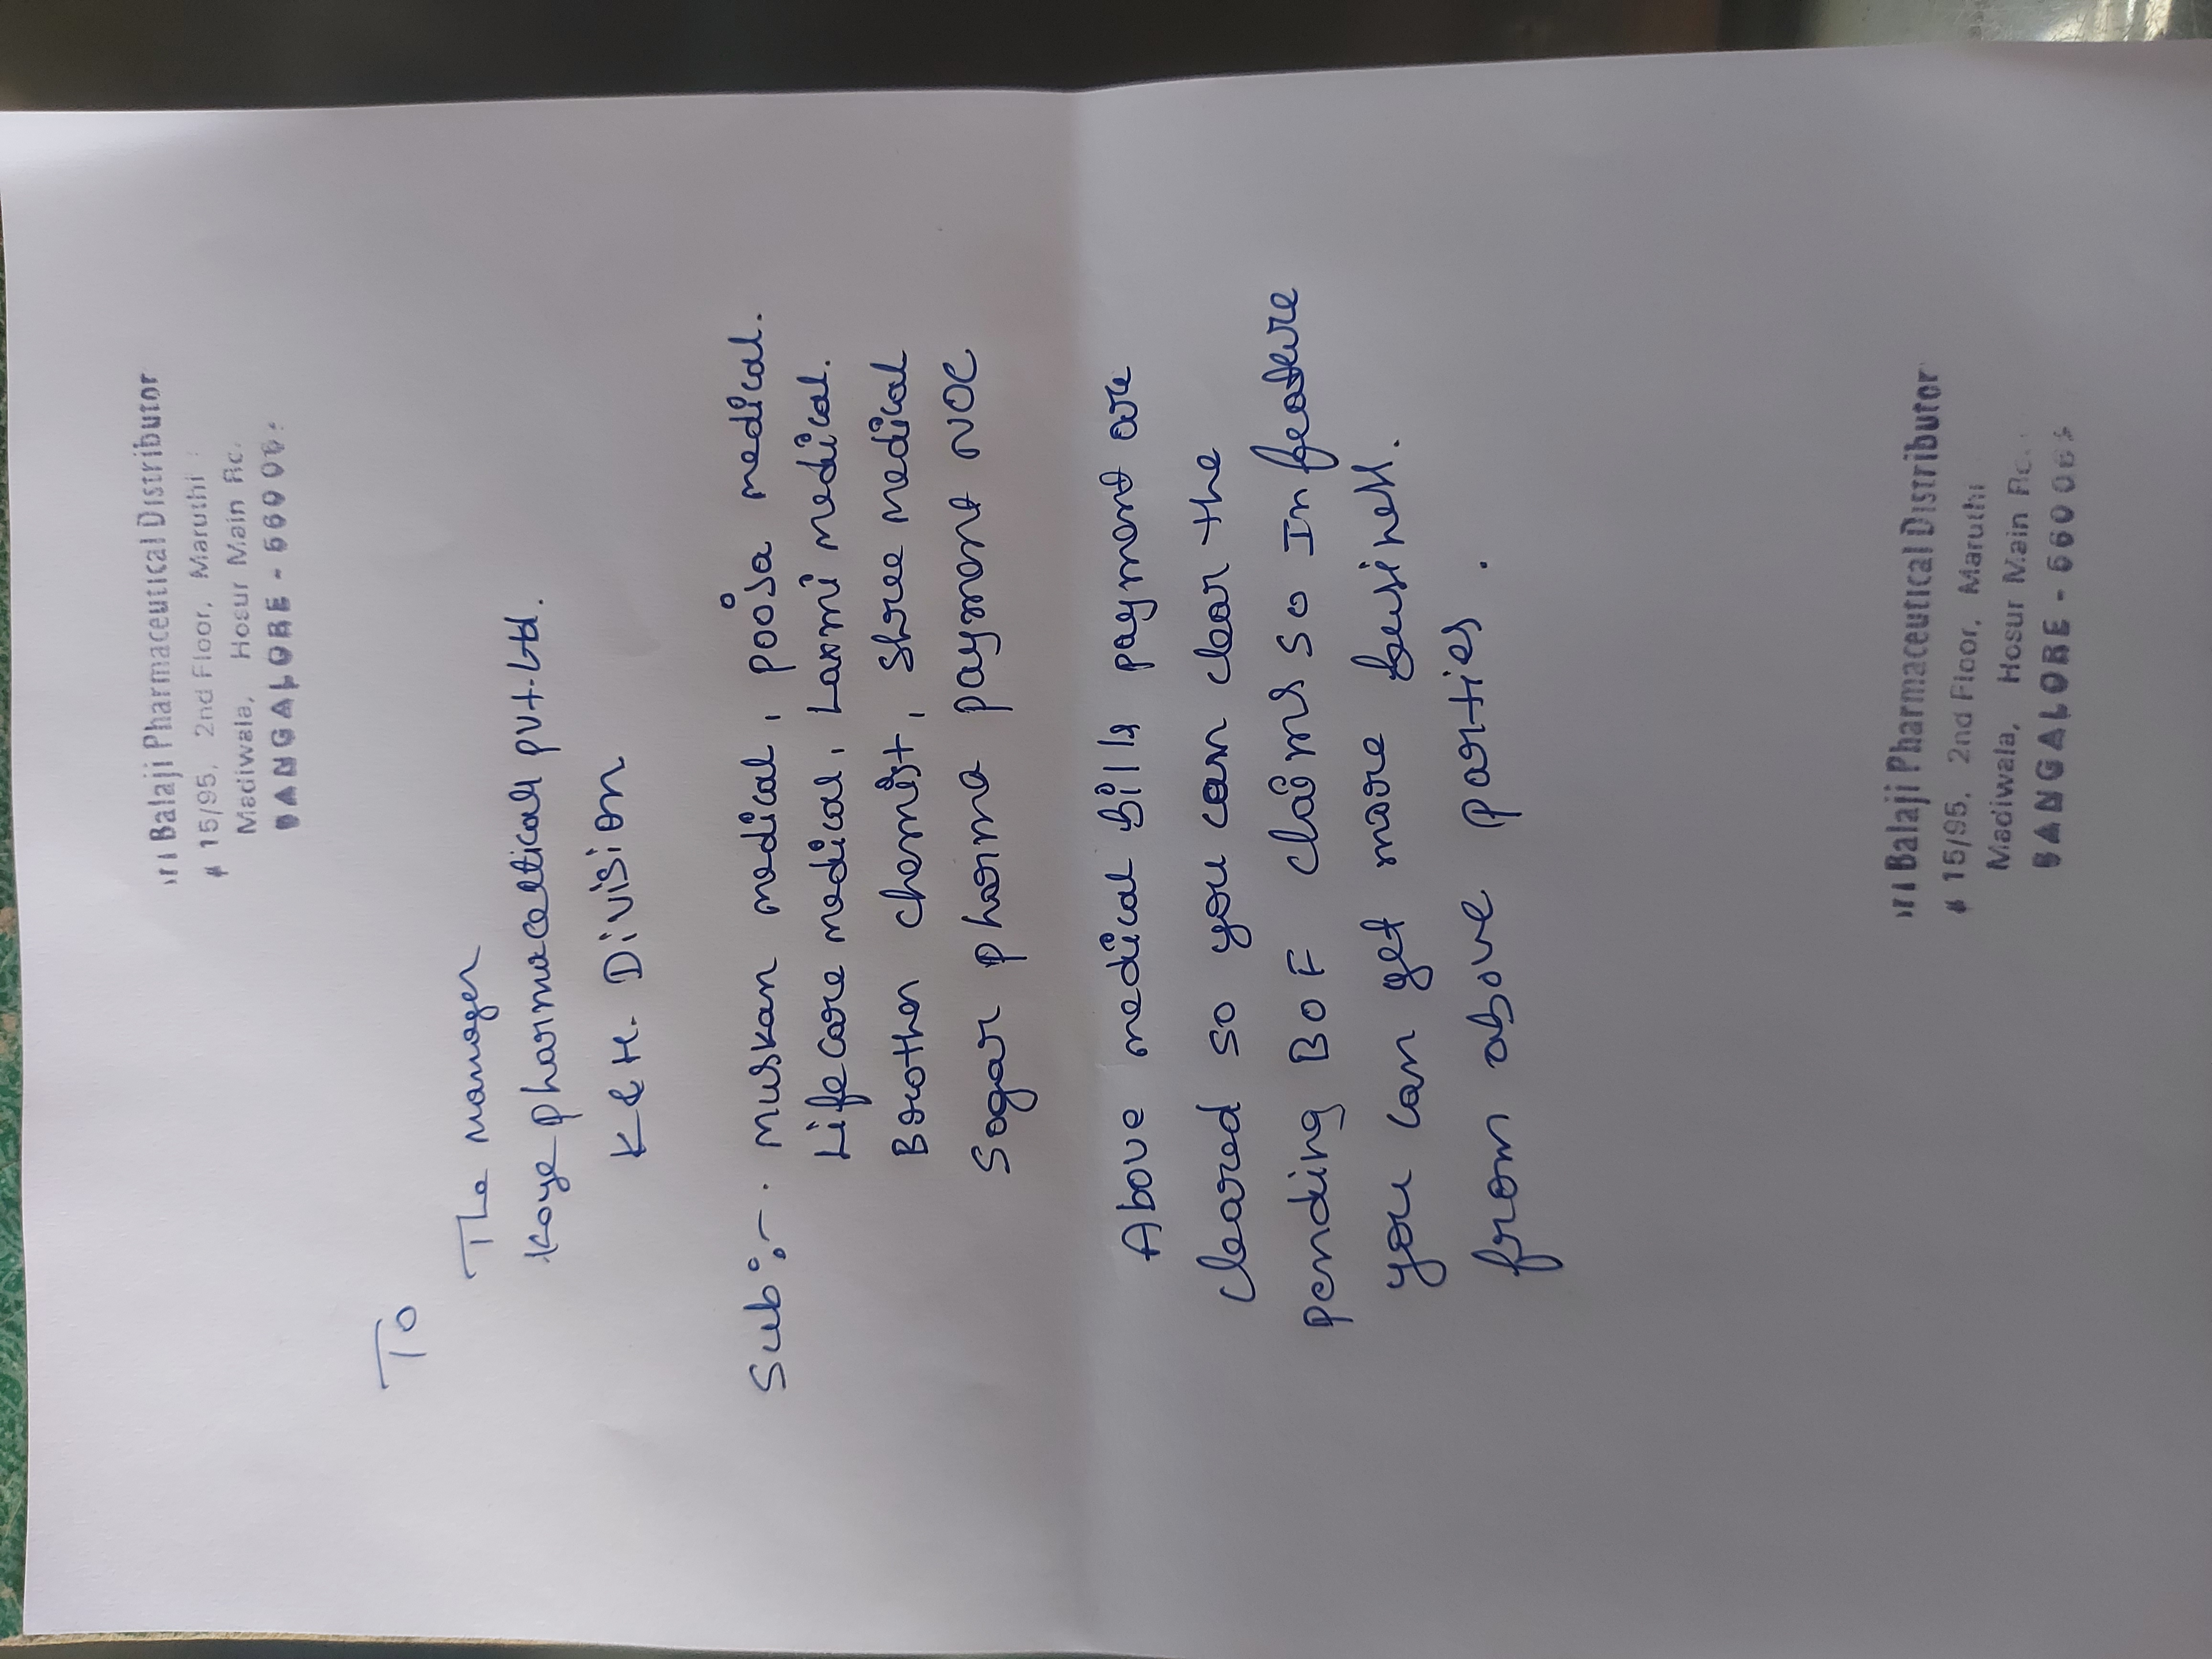 Balaji Pharmaceutical Distributor
# 15/95, 2nd Floor, Maruthi
Madiwala, Hosur Main
BANGALORE -
To
The manager
Kaye pharmaceutical pvt.Ltd.
K&H. Division
Sub:- . muskan medical, pooja medical.
Life care medical, Laxmi medical.
Brother chemist, Shree medical
Sagar pharma payment NOC
Above medical bills payment are
cleared so you can clear the
pending BOF claims so In feature
you can get more business.
from above parties.
Balaji Pharmaceutical Distributor
# 15/95, 2nd Floor, Maruthi
Madiwala, Hosur Main
BANGALORE -